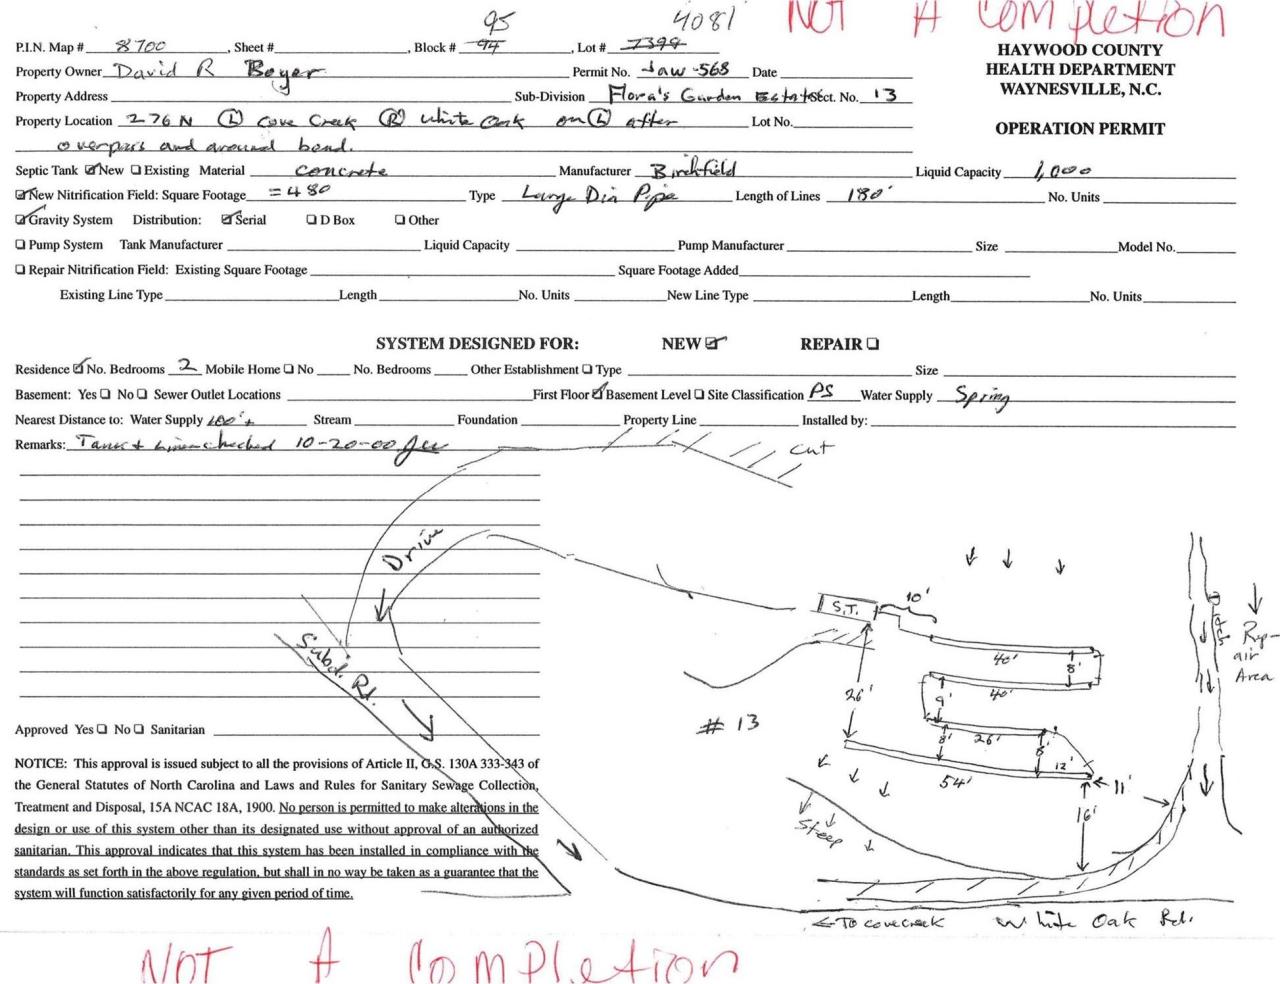 95 4081 NOT A Completion
P.I.N. Map # 8700 , Sheet # , Block # 94 , Lot # 7399
HAYWOOD COUNTY
HEALTH DEPARTMENT
WAYNESVILLE, N.C.
OPERATION PERMIT
Property Owner David R Boyer Permit No. Jaw-568 Date
Property Address Sub-Division Flora's Garden Estates Sect. No. 13
Property Location 276 N (L) Cove Creek (R) White Oak on (L) after Lot No.
overpass and around bend.
Septic Tank ☑ New ☐ Existing Material concrete Manufacturer Birchfield Liquid Capacity 1,000
☑ New Nitrification Field: Square Footage =480 Type Large Dia Pipe Length of Lines 180' No. Units
☑ Gravity System Distribution: ☑ Serial ☐ D Box ☐ Other
☐ Pump System Tank Manufacturer Liquid Capacity Pump Manufacturer Size Model No.
☐ Repair Nitrification Field: Existing Square Footage Square Footage Added
Existing Line Type Length No. Units New Line Type Length No. Units
SYSTEM DESIGNED FOR: NEW ☑ REPAIR ☐
Residence ☑ No. Bedrooms 2 Mobile Home ☐ No No. Bedrooms Other Establishment ☐ Type Size
Basement: Yes ☐ No ☐ Sewer Outlet Locations First Floor ☑ Basement Level ☐ Site Classification PS Water Supply Spring
Nearest Distance to: Water Supply 100'+ Stream Foundation Property Line Installed by:
Remarks: Tank + Lines checked 10-20-00
cut
Drive
Subd. Rd.
S.T. 10'
40' 8'
40'
26' 9'
# 13
8' 26' 8'
12'
54' 11'
16'
Steep
Repair Area
← To cove creek White Oak Rd.
Approved Yes ☐ No ☐ Sanitarian
NOTICE: This approval is issued subject to all the provisions of Article II, G.S. 130A 333-343 of
the General Statutes of North Carolina and Laws and Rules for Sanitary Sewage Collection,
Treatment and Disposal, 15A NCAC 18A, 1900. No person is permitted to make alterations in the
design or use of this system other than its designated use without approval of an authorized
sanitarian. This approval indicates that this system has been installed in compliance with the
standards as set forth in the above regulation, but shall in no way be taken as a guarantee that the
system will function satisfactorily for any given period of time.
NOT A Completion